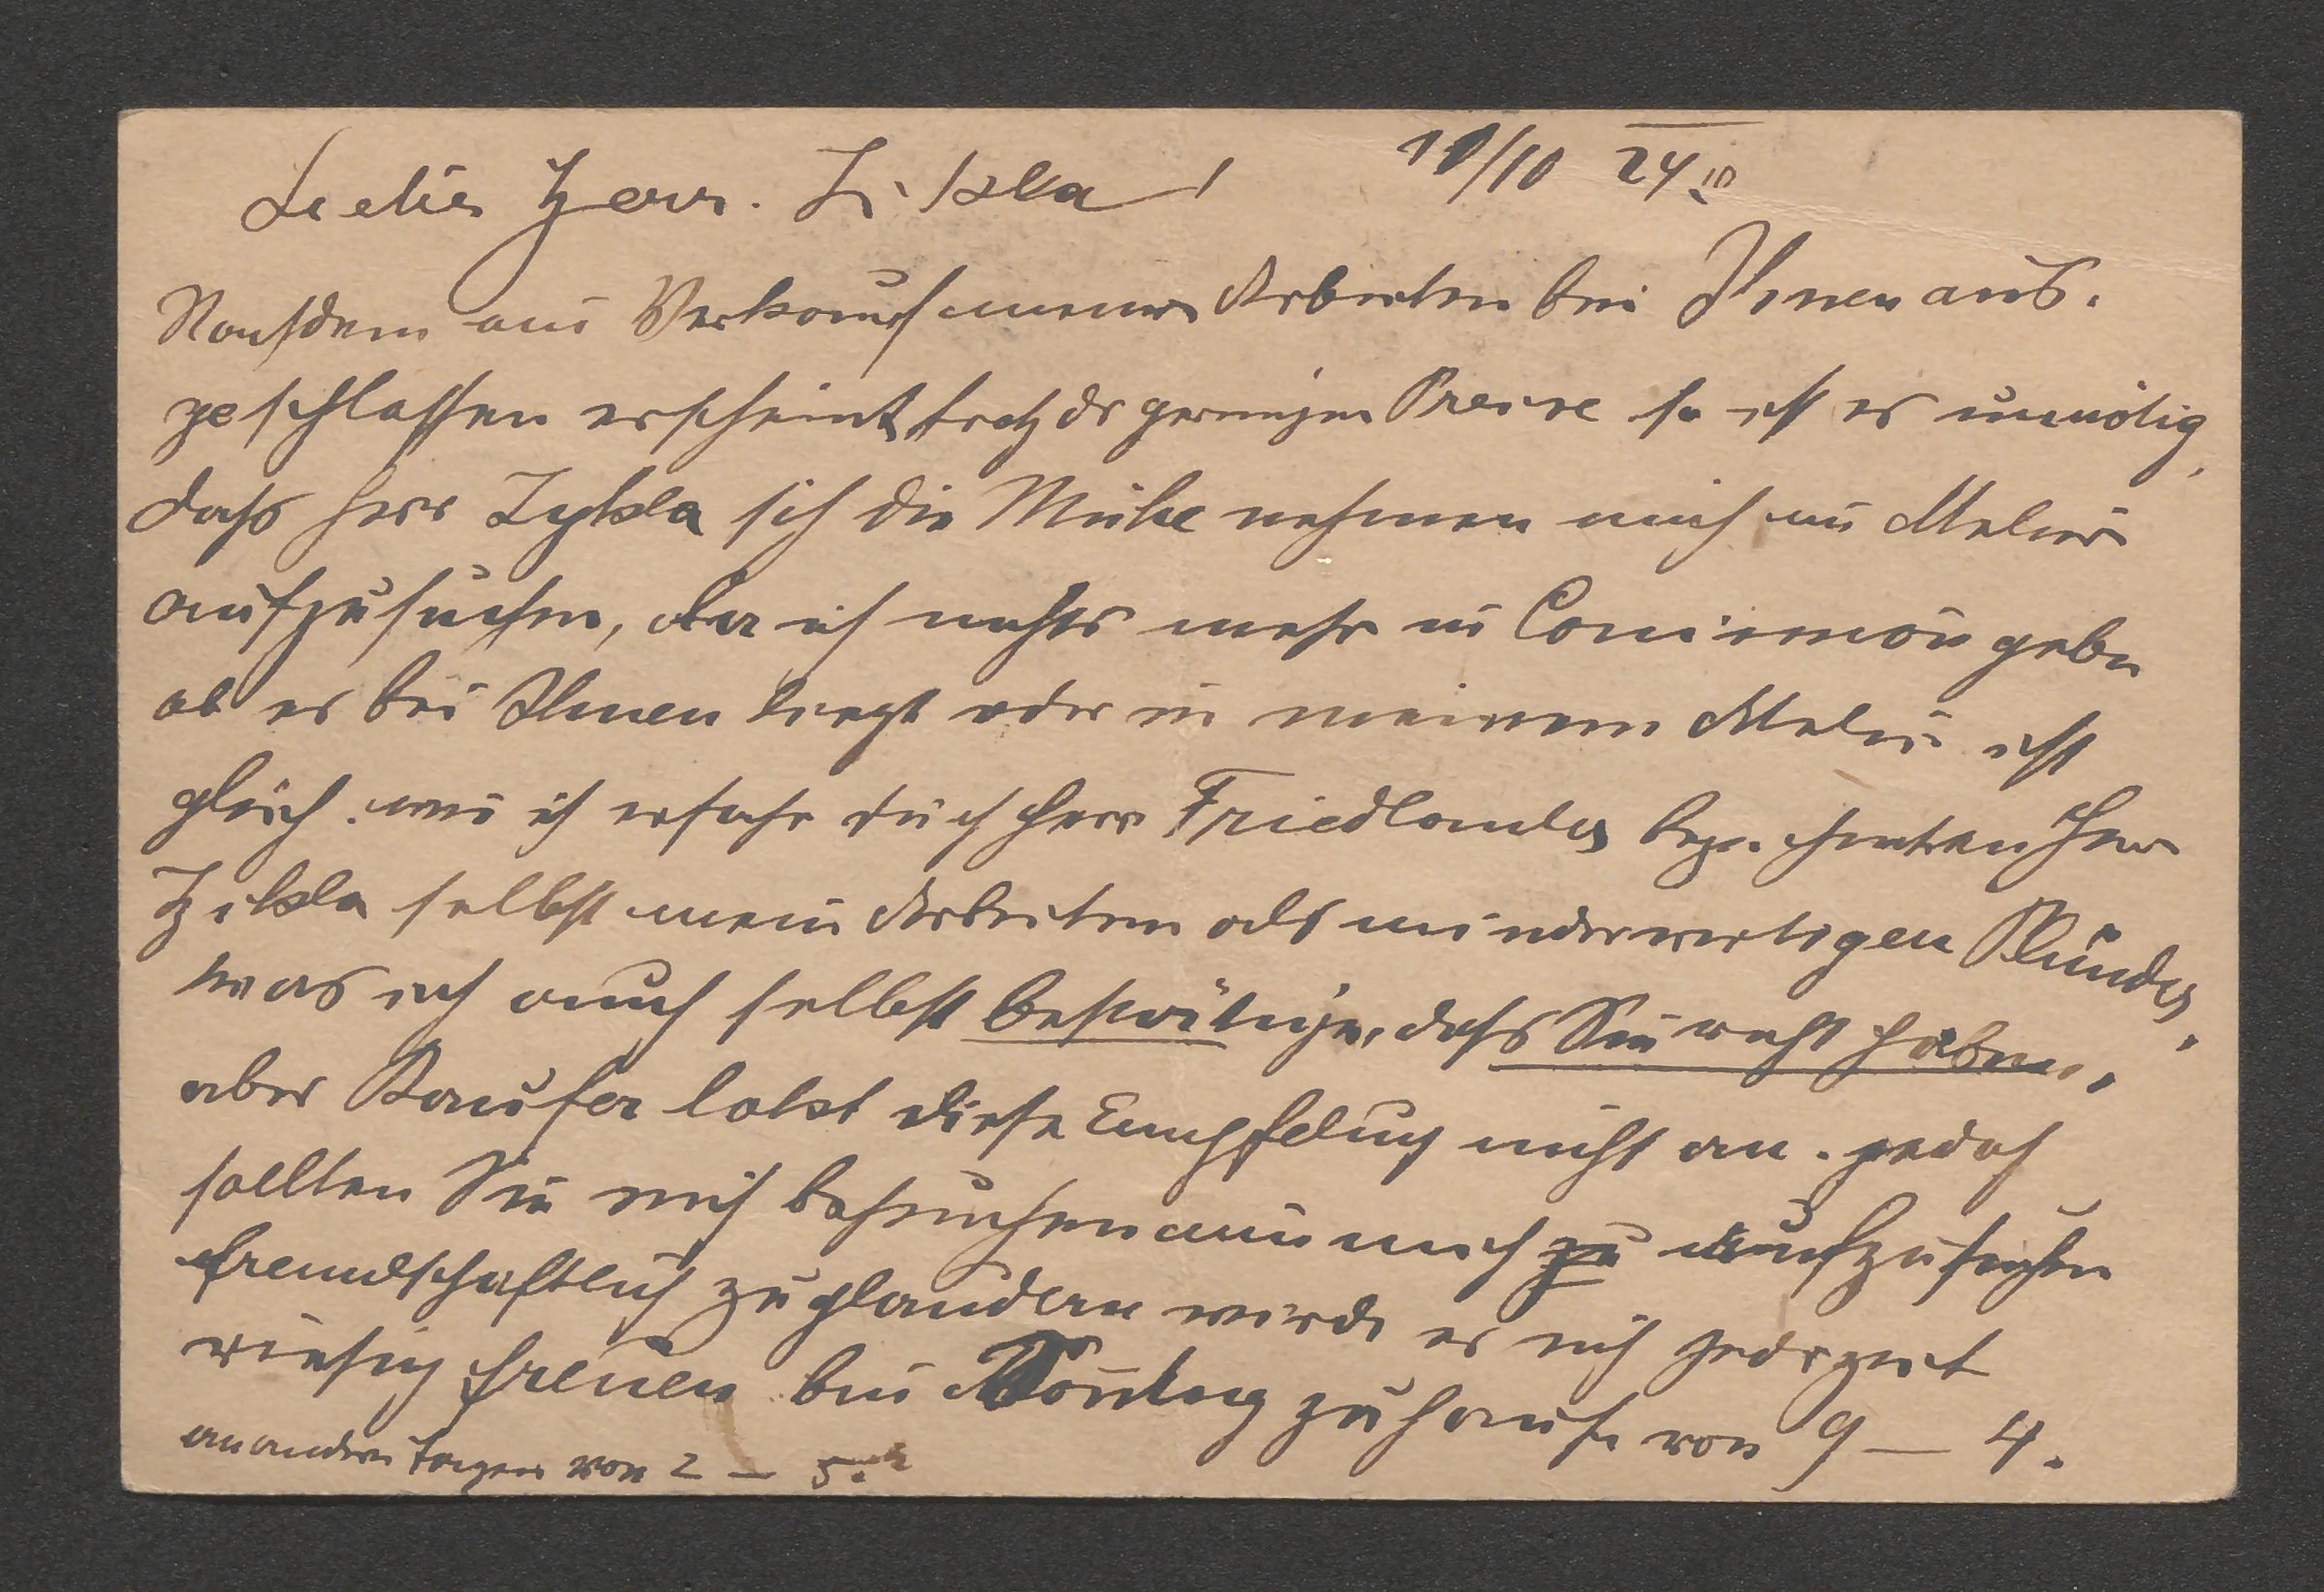 Lieber Herr. Zikla! 10/10 24
Nachdem ein Verkauf meiner Arbeiten bei Ihnen aus.
geschlossen erscheint trotz der geringen Preise so ist es unnötig,
dass Herr Zykla sich die Mühe nehmen mich im Atelier
aufzusuchen, da ich nichts mehr in Comission geben
ob es bei Ihnen liegt oder in meinem Atelier ist
gleich. wie ich erfahre durch Herr Friedlander bezeichneten Herr
Zikla selbst mein Arbeiten als minderwertigen Plunder,
was ich auch selbst bestätige, dass Sie recht haben,
aber Kaufer lokt diese Empfelung nicht an. jedoch
sollten Sie mich besuchen um mich zu aufzusuchen
freundschaftlich zu plaudern würde es mich jederzeit
riesig freuen bin Sontag zuhause von 9 — 4.
an andern Tagen von 2 — 5.